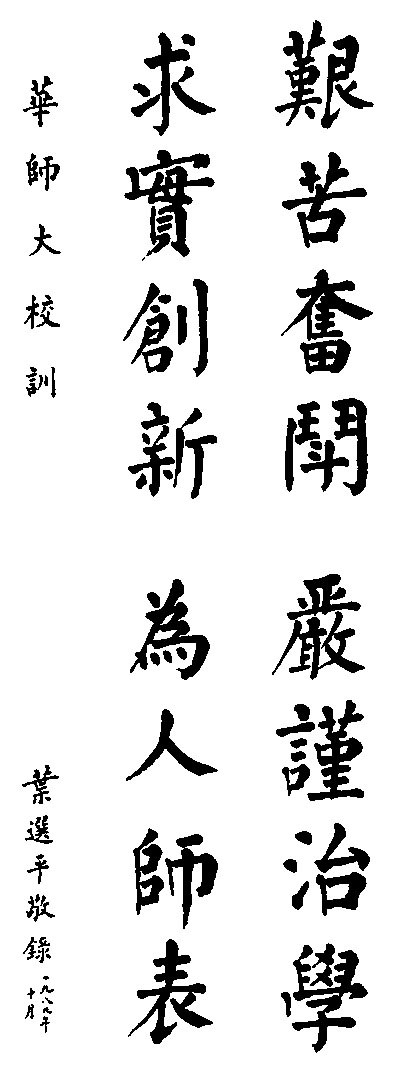 艱苦奮鬥 嚴謹治學
求實創新 為人師表
華師大校訓
葉選平敬錄
一九八九年
十月